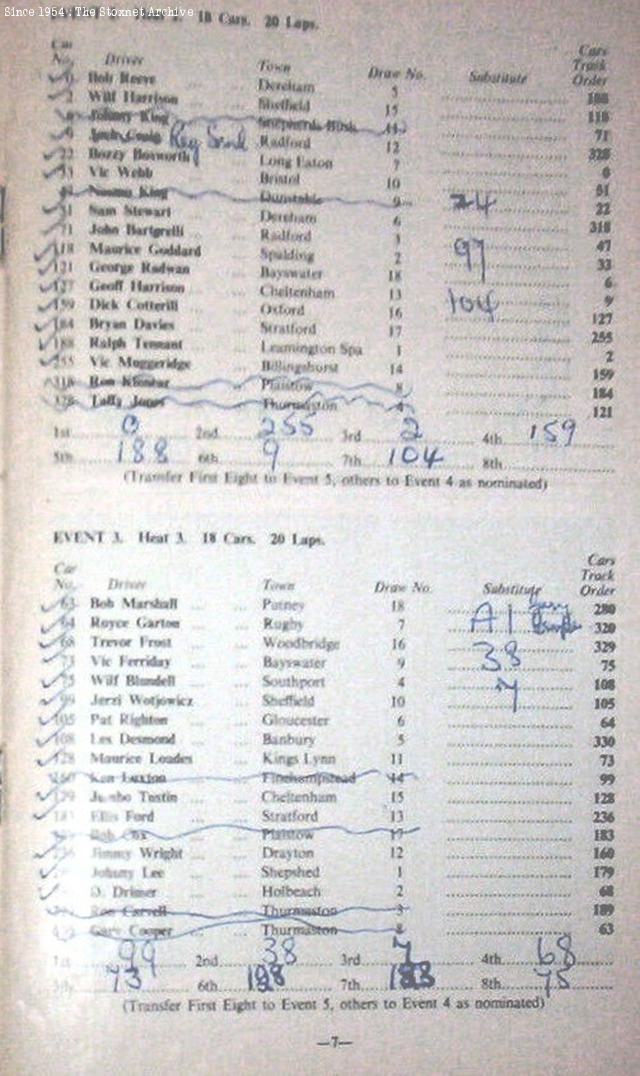 Since 1954 : The Stoxnet Archive
18 Cars. 20 Laps.
Car No. Driver Town Draw No. Substitute Cars Track Order
Bob Reeve Dereham 5 188
2 Wilf Harrison Sheffield 15 118
Johnny King Shepherds Bush 11 71
Radford 12 328
22 Bozzy Bosworth Long Eaton 7
33 Vic Webb Bristol 10 51
King Dunstable 9 24 22
Sam Stewart Dereham 6 318
John Bartgrelli Radford 3 47
118 Maurice Goddard Spalding 2 97 33
121 George Rodwan Bayswater 18 6
127 Geoff Harrison Cheltenham 13 9
159 Dick Cotterill Oxford 16 104 127
184 Bryan Davies Stratford 17 255
188 Ralph Tennant Leamington Spa 1 2
255 Vic Muggeridge Billingshurst 14 159
318 Ron Plaistow 8 184
328 Taffy Jones Thurmaston 4 121
1st 0 2nd 255 3rd 2 4th 159
5th 188 6th 9 7th 104 8th
(Transfer First Eight to Event 5, others to Event 4 as nominated)
EVENT 3. Heat 3. 18 Cars. 20 Laps.
Car No. Driver Town Draw No. Substitute Cars Track Order
63 Bob Marshall Putney 18 A1 280
64 Royce Garton Rugby 7 320
68 Trevor Frost Woodbridge 16 38 329
73 Vic Ferriday Bayswater 9 75
75 Wilf Blundell Southport 4 7 108
99 Jerzi Wotjowicz Sheffield 10 105
105 Pat Righton Gloucester 6 64
108 Les Desmond Banbury 5 330
128 Maurice Loades Kings Lynn 11 73
160 Ken Luxton Finchampstead 14 99
179 Jumbo Tustin Cheltenham 15 128
183 Ellis Ford Stratford 13 236
Bob Cox Plaistow 17 183
Jimmy Wright Drayton 12 160
Johnny Lee Shepshed 1 179
D. Drimer Holbeach 2 68
Ron Carvell Thurmaston 3 189
Gary Cooper Thurmaston 8 63
1st 99 2nd 38 3rd 7 4th 68
5th 73 6th 128 7th 183 8th 75
(Transfer First Eight to Event 5, others to Event 4 as nominated)
—7—